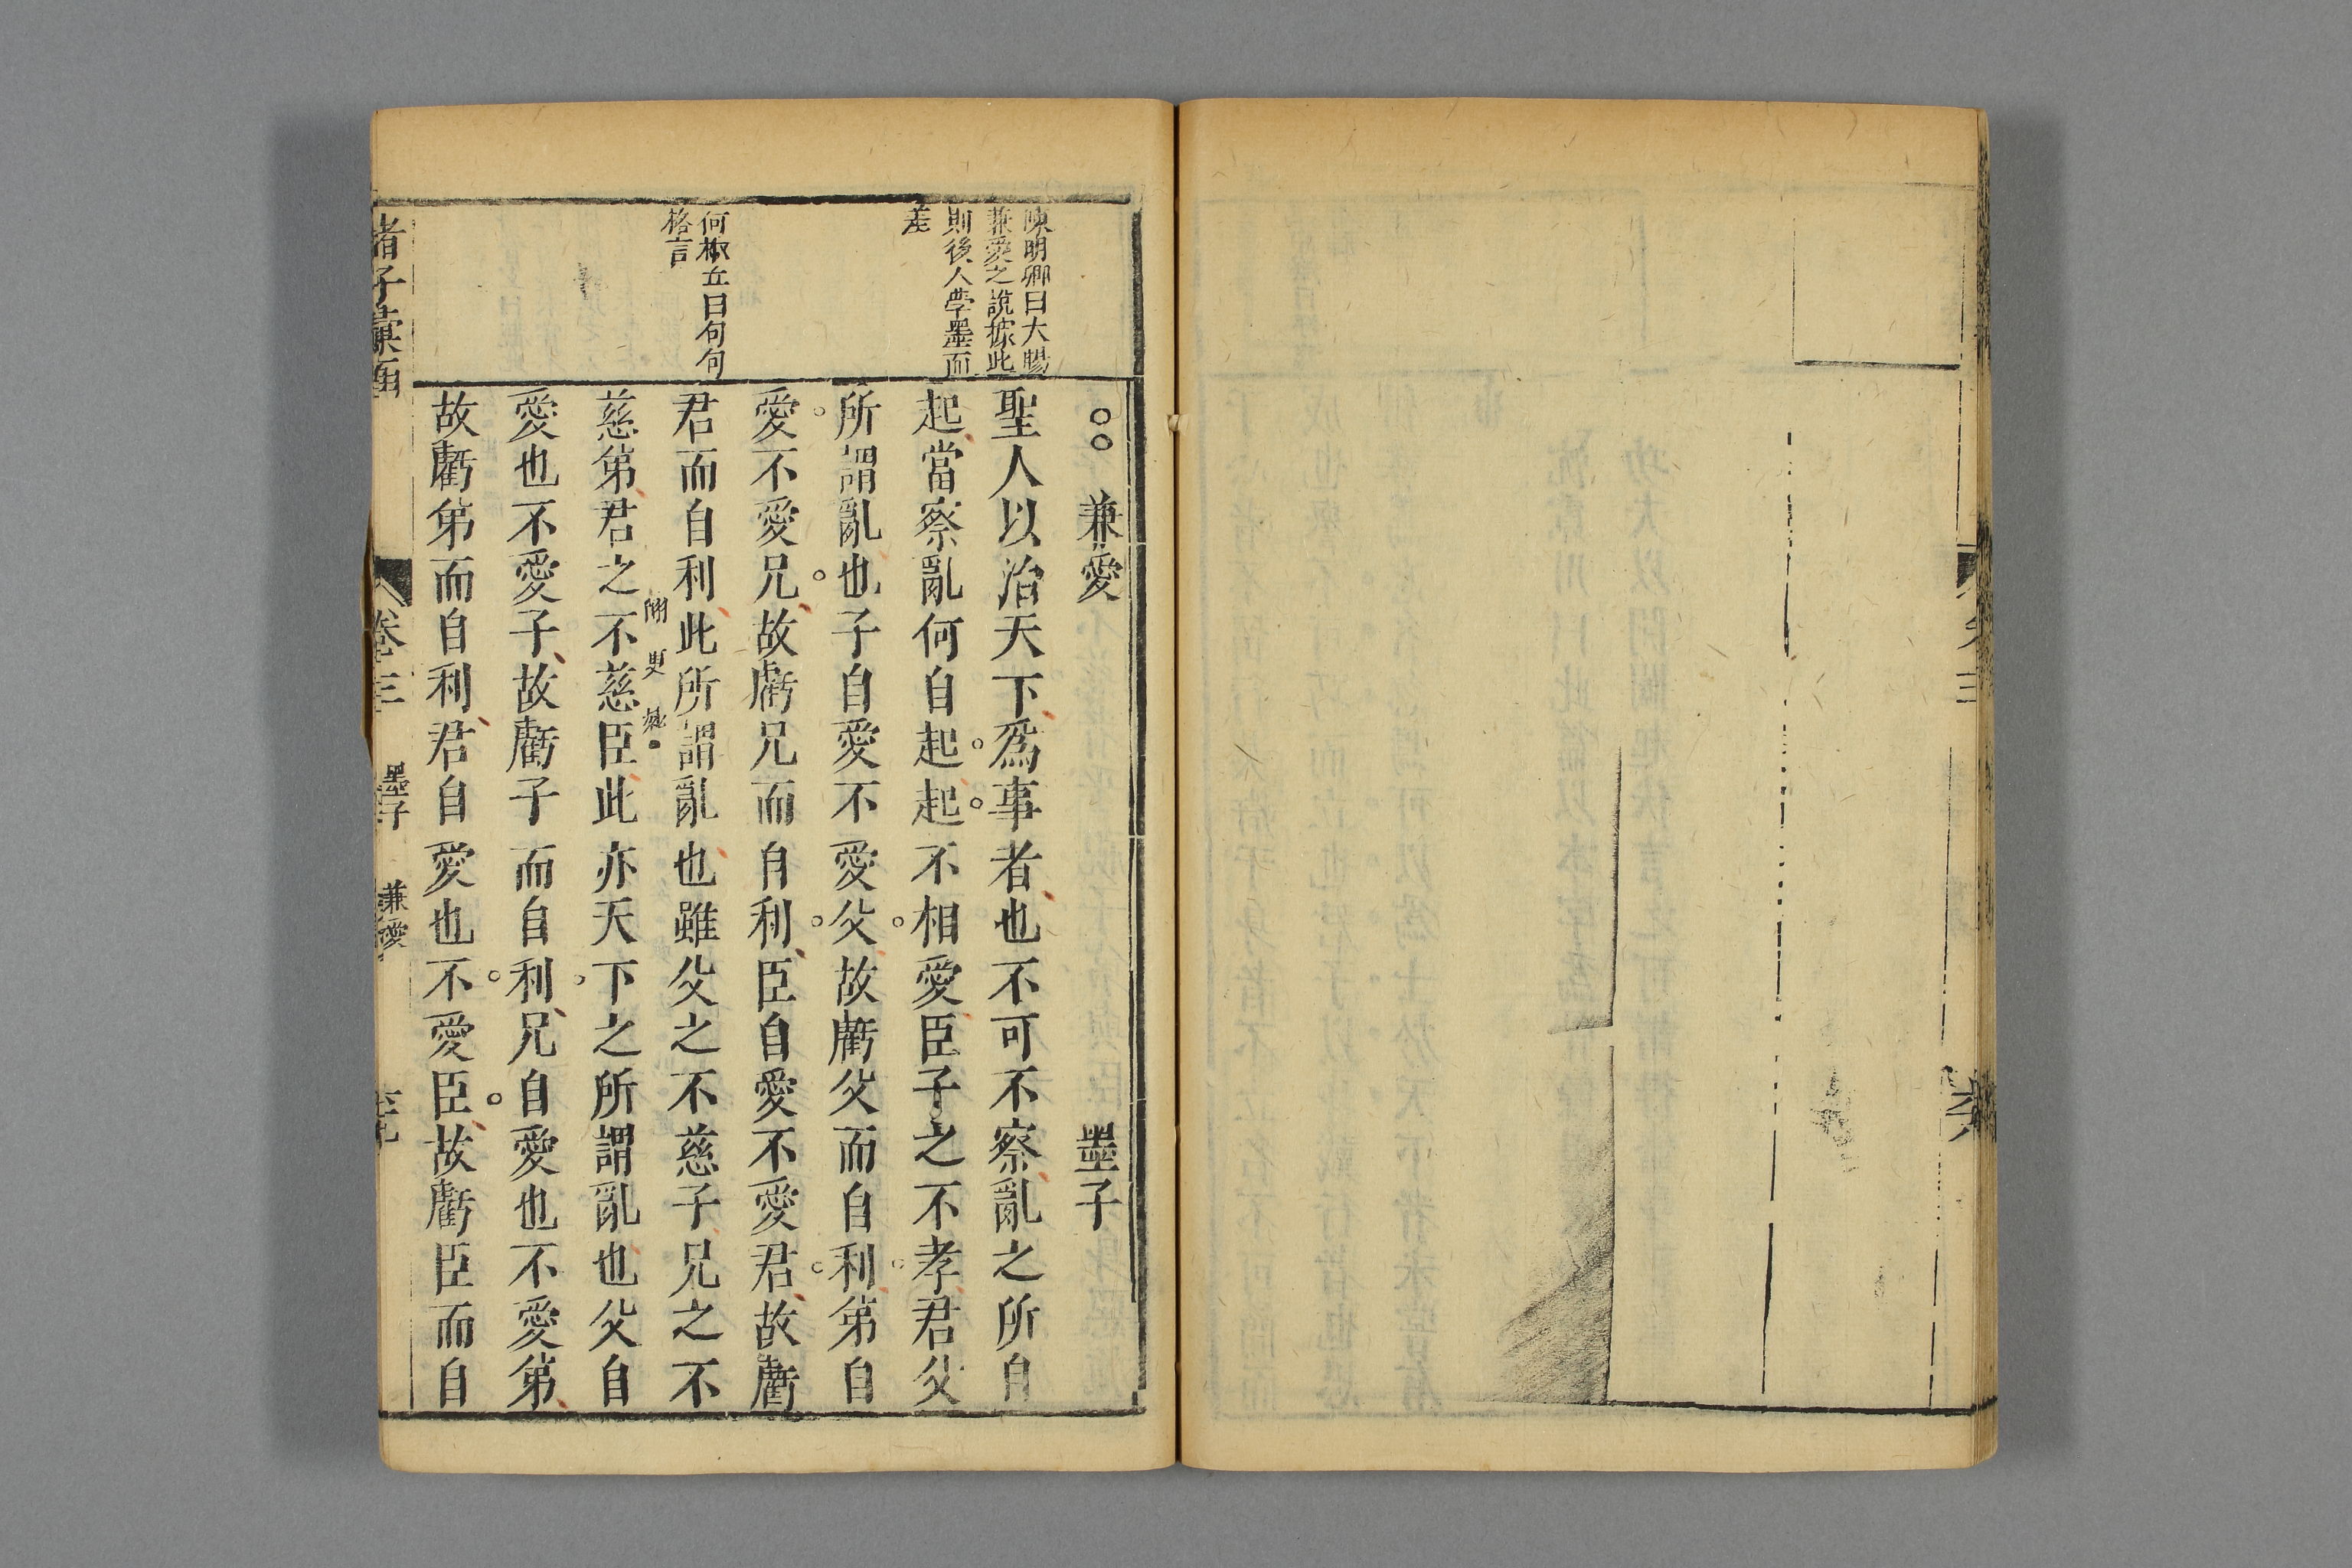 卷三
陳明卿曰大暢
兼愛之說據此
則後人學墨而
差
何椒丘曰句句
格言
兼愛 墨子
聖人以治天下爲事者也不可不察亂之所自
起當察亂何自起起不相愛臣子之不孝君父
所謂亂也子自愛不愛父故虧父而自利第自
愛不愛兄故虧兄而自利臣自愛不愛君故虧
君而自利此所謂亂也雖父之不慈子兄之不
翻更妙
慈第君之不慈臣此亦天下之所謂亂也父自
愛也不愛子故虧子而自利兄自愛也不愛第
故虧第而自利君自愛也不愛臣故虧臣而自
諸子彙函 卷三 墨子 兼愛